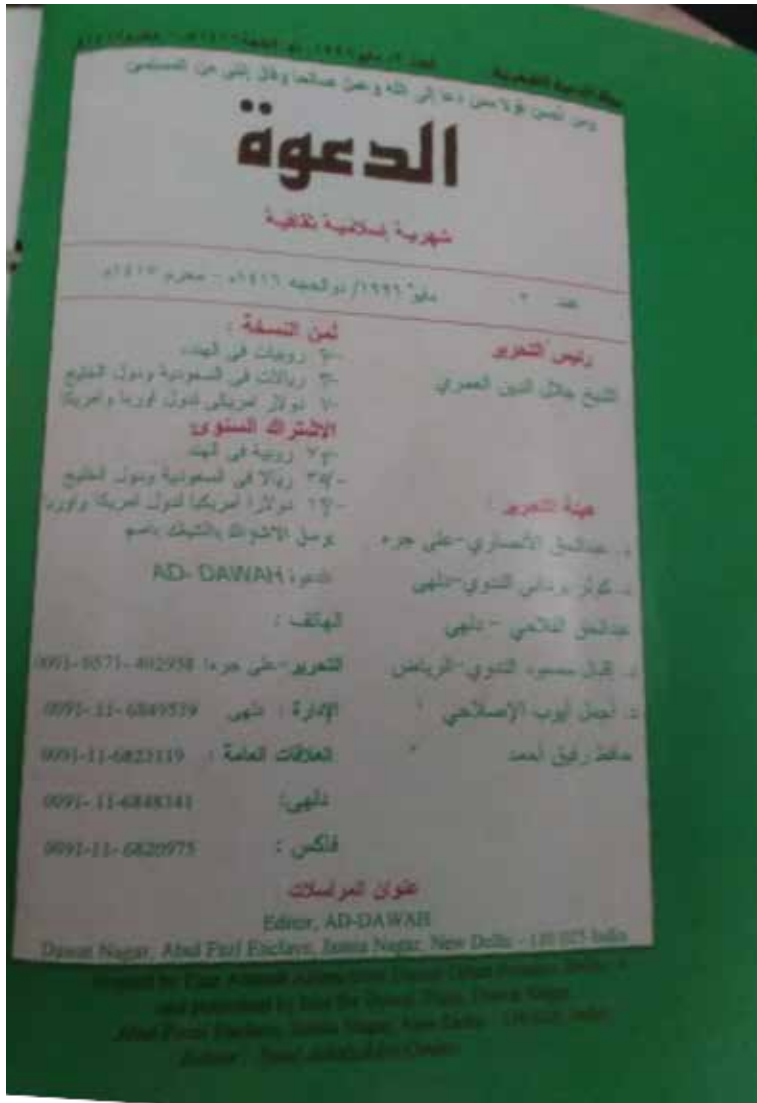 مجلة الدعوة الشهرية
ومن أحسن قولا ممن دعا إلى الله وعمل صالحا وقال إنني من المسلمين
الدعوة
شهرية إسلامية ثقافية
عدد ٢. مايو ١٩٩٦/ ذوالحجه ١٤١٦ه - محرم ١٤١٧ه
رئيس التحرير
الشيخ جلال الدين العمري
هيئة التحرير :
د. عبدالحق الأنصاري-على جره
د. كوثر يزداني الندوي-دلهي
عبدالحق الفلاحي - دلهي
د. إقبال مسعود الندوي-الرياض
د. أجمل أيوب الإصلاحي
حافظ رفيق أحمد
ثمن النسخة :
روبيات فى الهند
-٣ ريالات فى السعودية ودول الخليج
دولار امريكى لدول اوربا وامريكا
الاشتراك السنوى:
روبية فى الهند
ريالا فى السعودية ودول الخليج
دولارا أمريكيا لدول أمريكا واوربا
يرسل الاشتراك بالشيك باسم
الدعوة AD- DAWAH
الهاتف :
التحرير-على جره: 0091-0571-402958
الإدارة : دلهى 0091-11-6849539
العلاقات العامة : 0091-11-6823119
دلهي: 0091-11-6848341
فاكس : 0091-11-6820975
عنوان المراسلات
Editor, AD-DAWAH
Dawat Nagar, Abul Fazl Enclave, Jamia Nagar, New Delhi - 110 025 India
and published by him for Dawat Trust, Dawat Nagar
Abul Fazal Enclave, Jamia Nagar, New Delhi - 110 025, India
Editor :